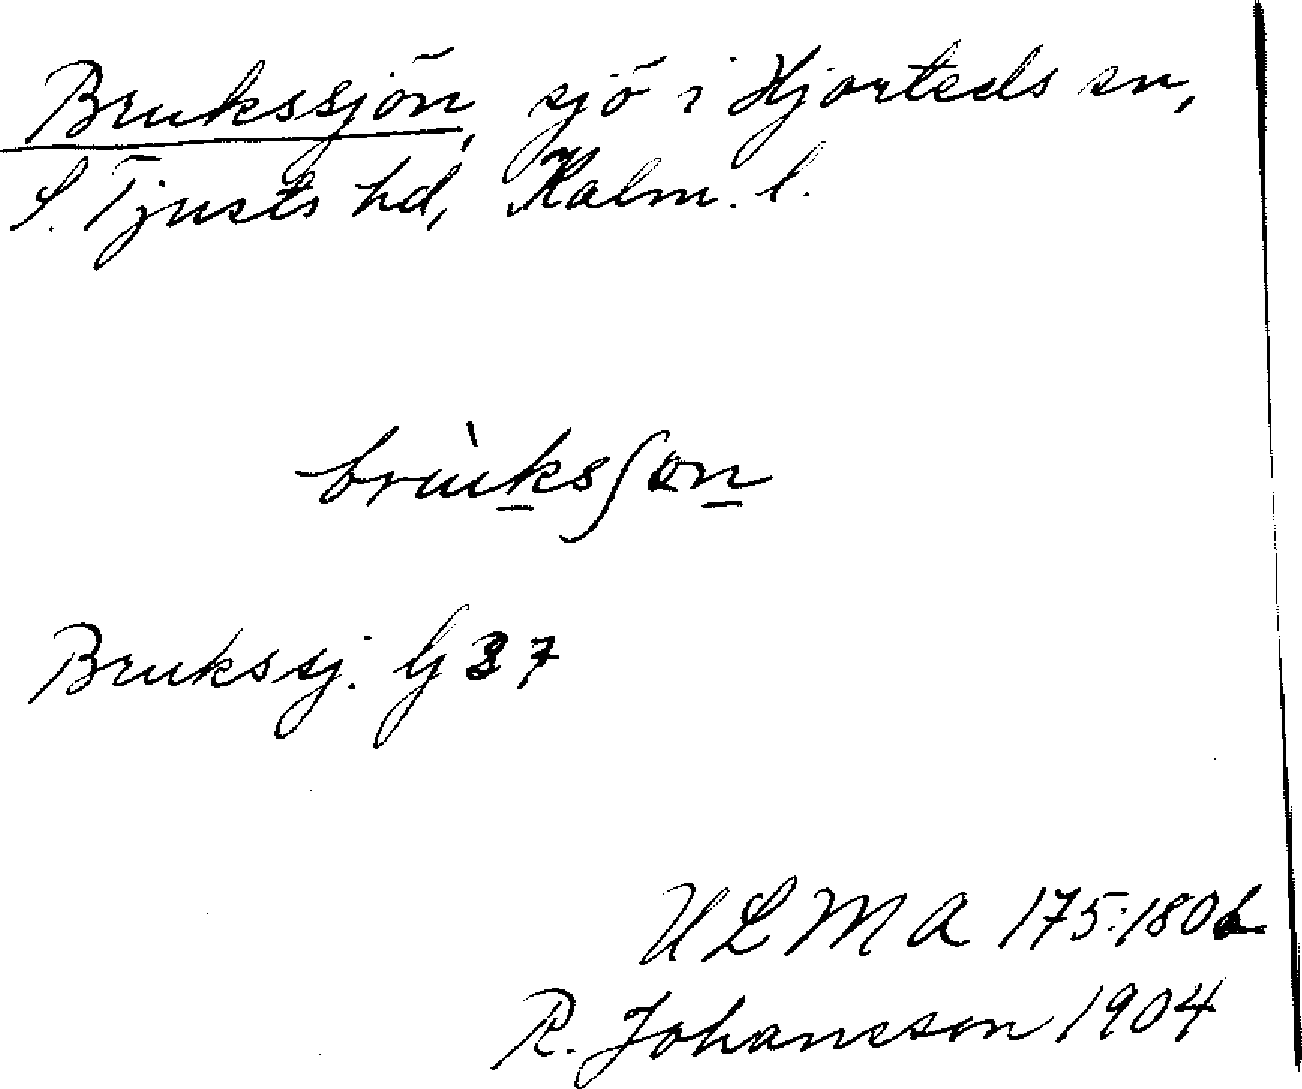 Brukssjön, sjö i Hjorteds sn,
S. Tjusts hd, Kalm. l.
brùksʃɷn
Brukssj. G 37
ULMA 175:180 b
R. Johansson 1904